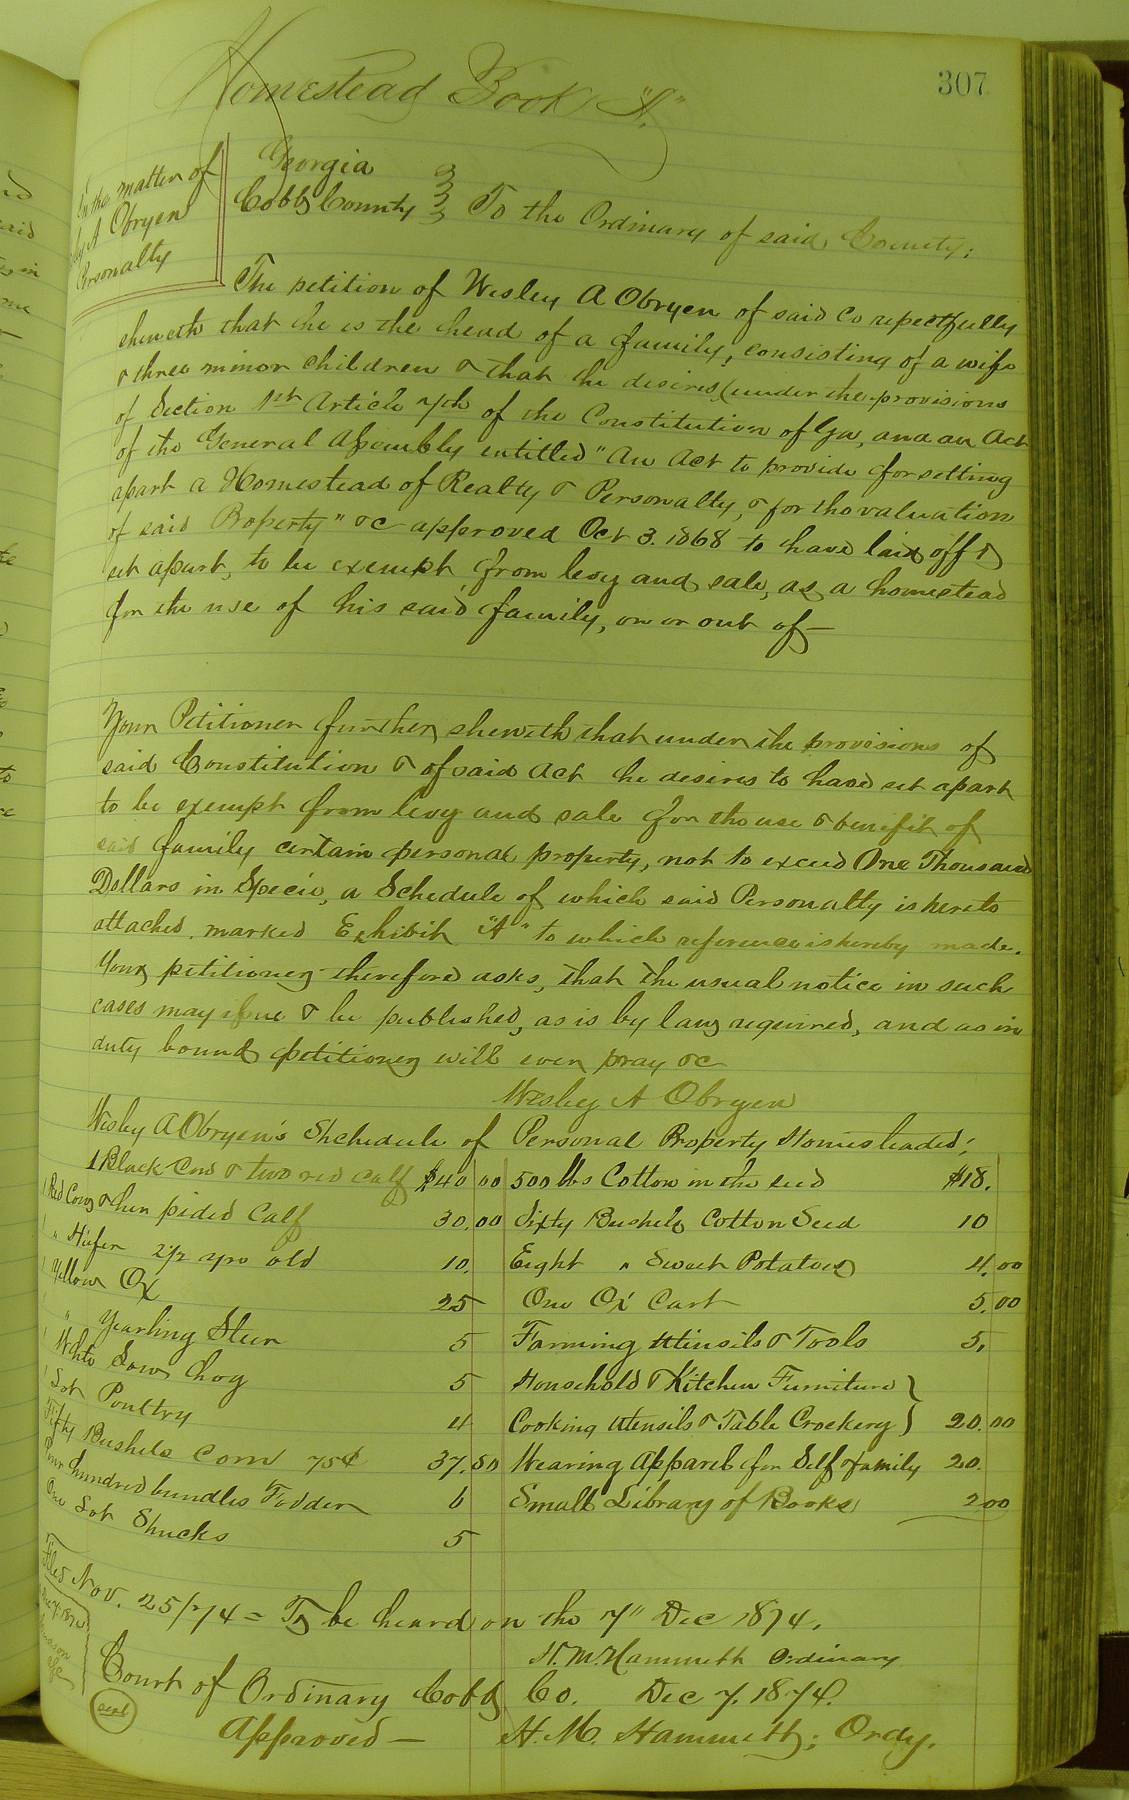 307
Homestead Book "A."
In the matter of
Wesley A Obryen
Personalty
Georgia
Cobb County } To the Ordinary of said County:
The petition of Wesley A Obryen of said Co repectfully
sheweth that he is the head of a family, consisting of a wife
& three minor children & that he desires (under the provisions
of Section 1st Article 7th of the Constitution of Ga, and an Act
of the General Assembly entitled "An Act to provide for setting
apart a Homestead of Realty & Personalty, & for the valuation
of said Property" &c approved Oct 3. 1868 to have laid off &
set apart, to be exempt from levy and sale, as a homestead
for the use of his said family, on or out of —
Your Petitioner further sheweth that under the provisions of
said Constitution & of said Act he desires to have set apart
to be exempt from levy and sale for the use & benefit of
said family certain personal property, not to exceed One Thousand
Dollars in Specie, a Schedule of which said Personalty is hereto
attached. marked Exhibit "A" to which reference is hereby made.
Your petitioner therefore asks, that the usual notice in such
cases may issue & be published, as is by law required, and as in
duty bound petitioner will ever pray &c
Wesley A Obryen
Wesley A Obryen's Shchedule of Personal Property Homesteaded;
1 Black Cow & two red calf $40 00
1 Red Cow & her pided Calf 30.00
1 " Heifer 2 1/2 yrs old 10.
1 Yellow Ox 25
1 " Yearling Steer 5
1 White Sow hog 5
1 Lot Poultry 4
Fifty Bushels Corn 75¢ 37.50
Four hundred bundles Fodder 6
One Lot Shucks 5
500 lbs Cotton in the seed $18.
Sixty Bushels Cotton Seed 10
Eight " Sweet Potatoes 4.00
One Ox Cart 5.00
Farming Utinsils & Tools 5.
Household & Kitchen Furniture }
Cooking Utensils & Table Crockery } 20.00
Wearing Apparel for Self & family 20.
Small Library of Books 2.00
Filed Nov. 25/74 = To be heard on the 7" Dec 1874.
H. M. Hammett Ordinary
Court of Ordinary Cobb Co. Dec 7. 1874.
seal
Approved — H. M. Hammett; Ordy.